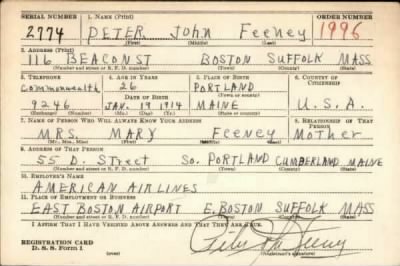 SERIAL NUMBER 1. NAME (Print) ORDER NUMBER
2774 PETER John Feeney 1996
(First) (Middle) (Last)
2. ADDRESS (Print)
116 BEACON ST BOSTON SUFFOLK MASS
(Number and street or R. F. D. number) (Town) (County) (State)
3. TELEPHONE 4. AGE IN YEARS 5. PLACE OF BIRTH 6. COUNTRY OF CITIZENSHIP
Commonwealth 26 PORTLAND
DATE OF BIRTH (Town or county)
9246 JAN. 19 1914 MAINE U.S.A.
(Exchange) (Number) (Mo.) (Day) (Yr.) (State or country)
7. NAME OF PERSON WHO WILL ALWAYS KNOW YOUR ADDRESS 8. RELATIONSHIP OF THAT PERSON
MRS. MARY FEENEY Mother
(Mr., Mrs., Miss) (First) (Middle) (Last)
9. ADDRESS OF THAT PERSON
55 D. Street So. PORTLAND CUMBERLAND MAINE
(Number and street or R. F. D. number) (Town) (County) (State)
10. EMPLOYER'S NAME
AMERICAN AIRLINES
11. PLACE OF EMPLOYMENT OR BUSINESS
EAST BOSTON AIRPORT E. BOSTON SUFFOLK MASS
(Number and street or R. F. D. number) (Town) (County) (State)
I AFFIRM THAT I HAVE VERIFIED ABOVE ANSWERS AND THAT THEY ARE TRUE.
REGISTRATION CARD
D. S. S. Form 1 Peter John Feeney
(Registrant's signature)